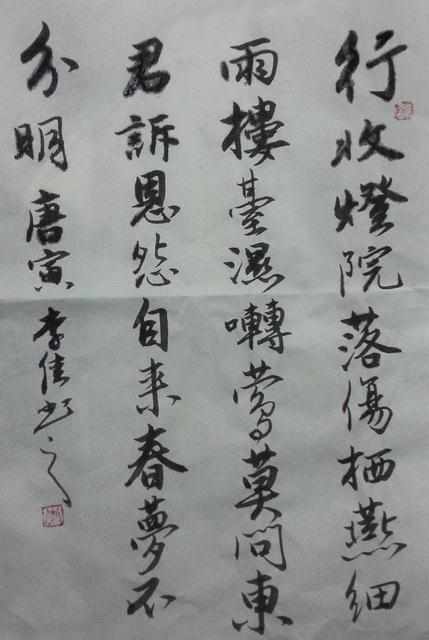 行收燈院落傷栖燕細
雨樓臺濕囀鶯莫問東
君訴恩怨自来春夢不
分明唐寅李佳書之